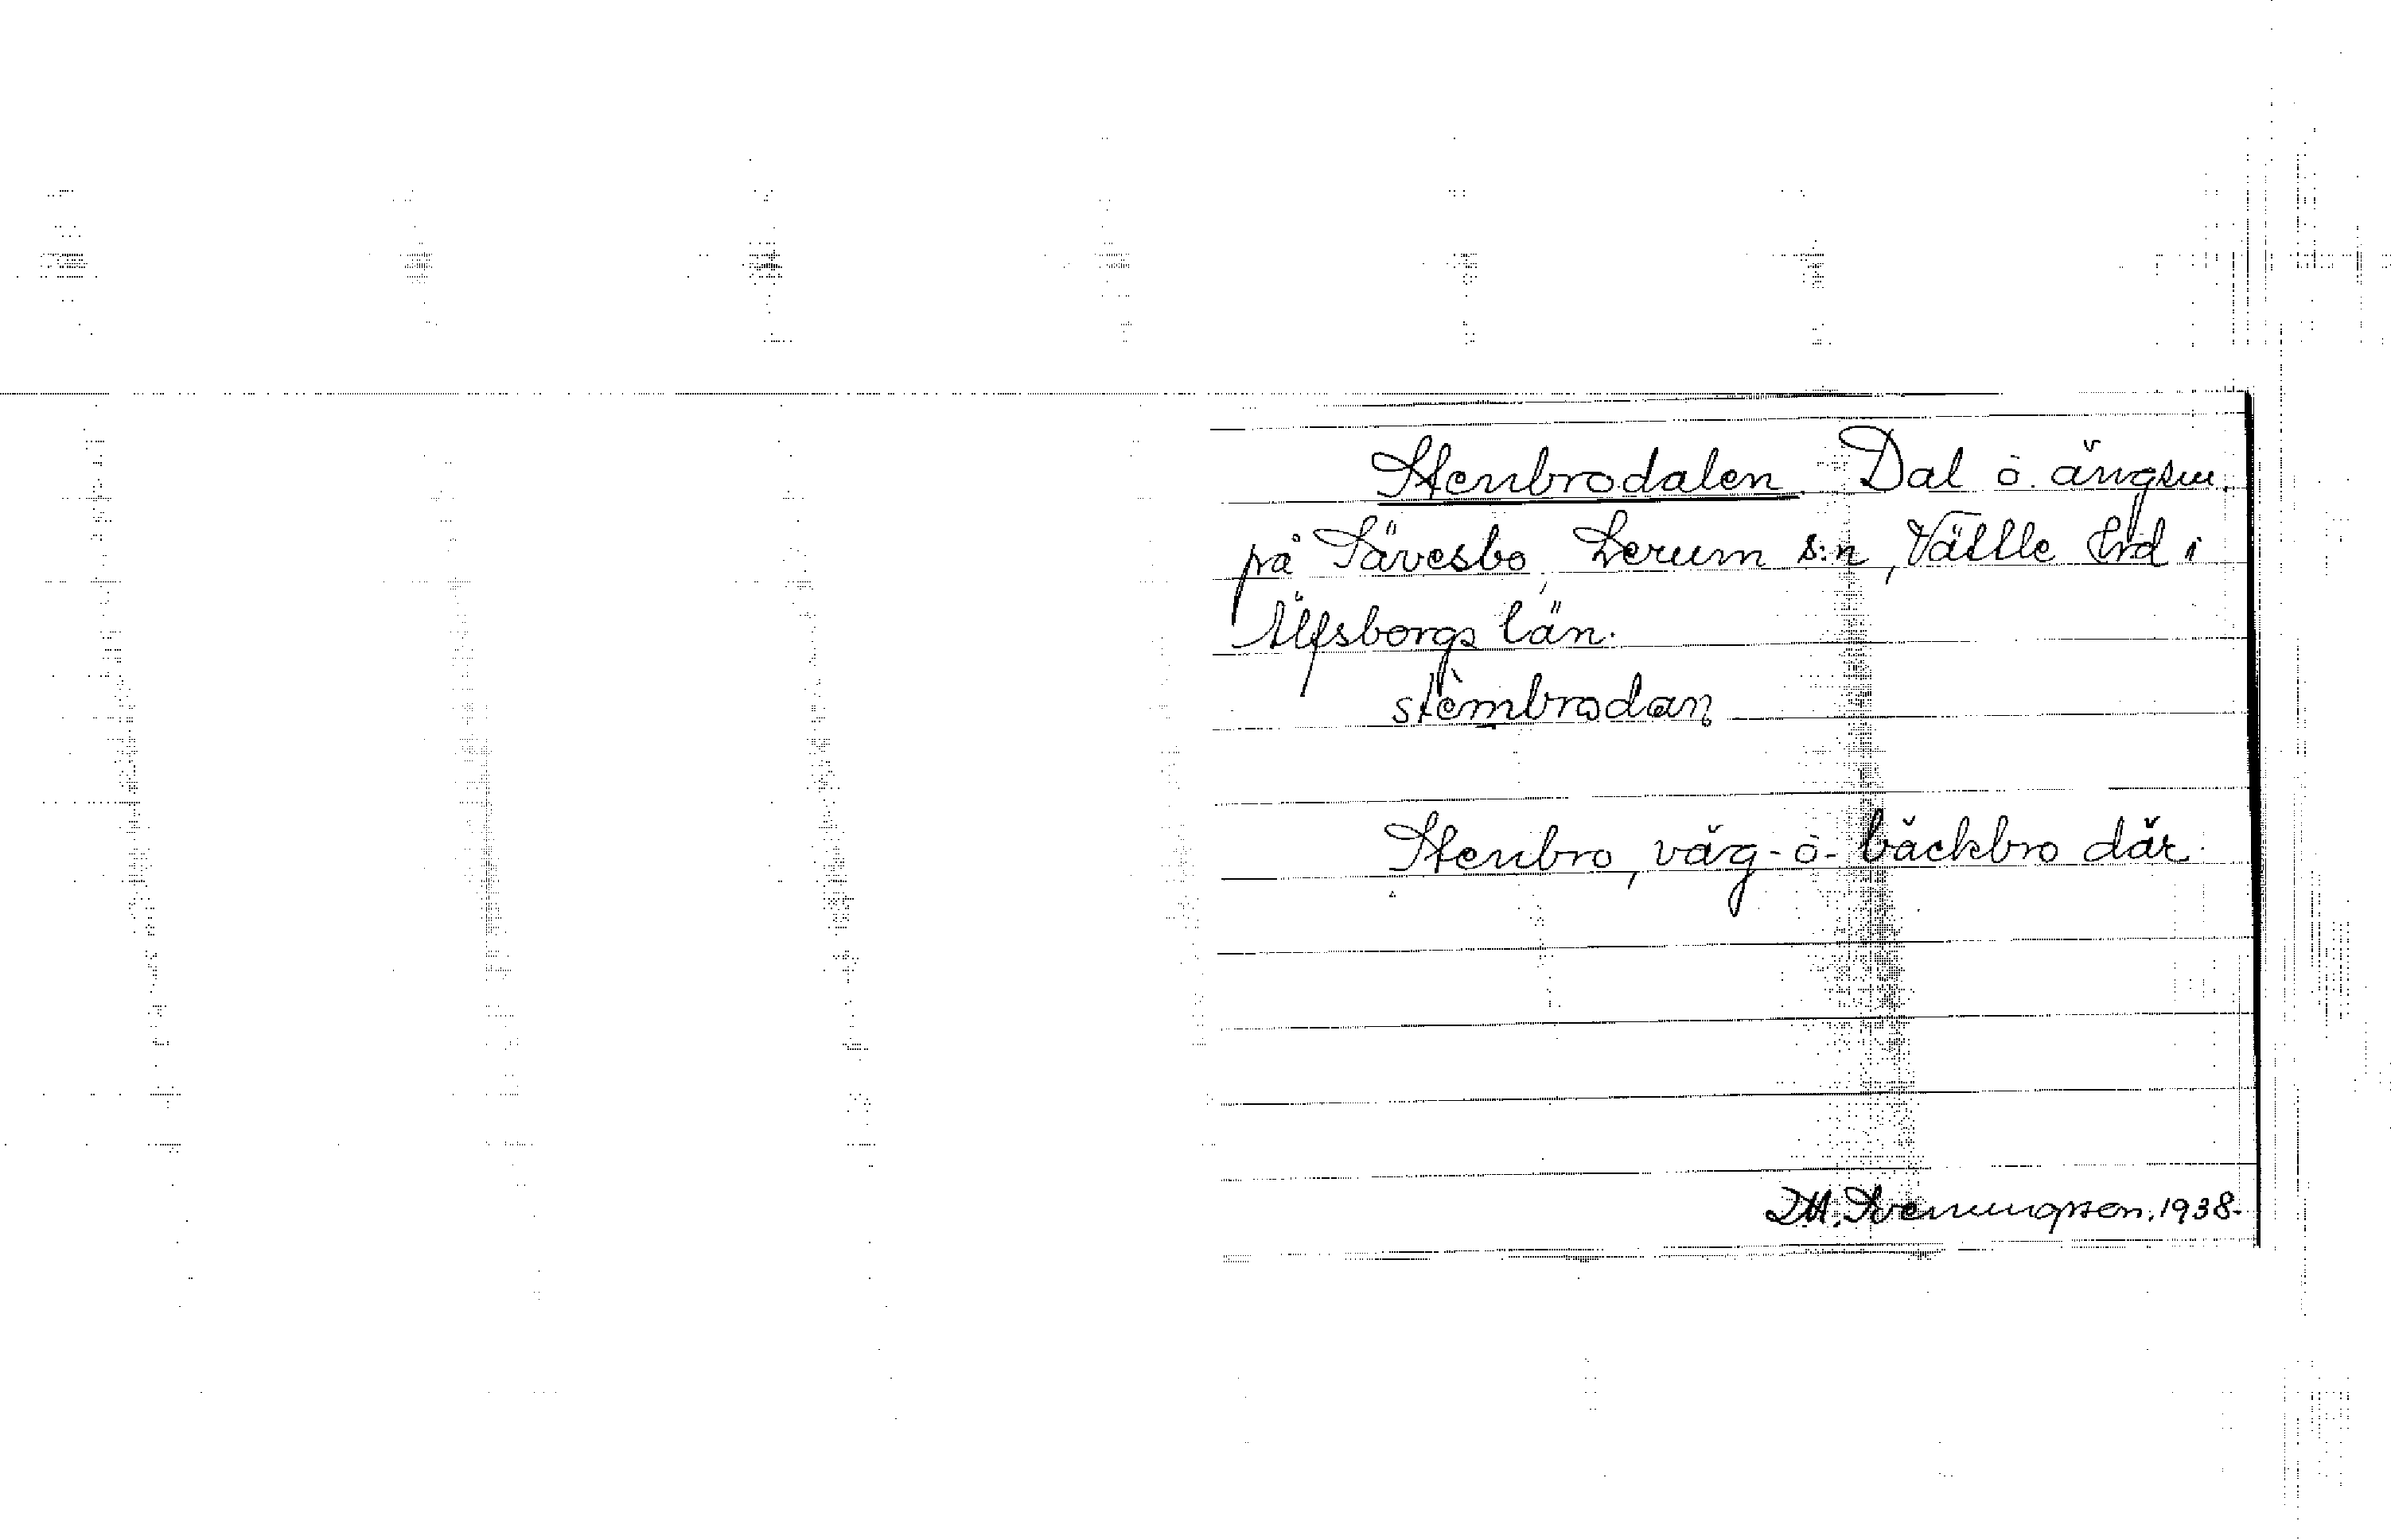 Stenbrodalen. Dal o. ängsm.
på Sävesbo, Lerum s:n, Vättle hrd i
Älfsborgs län.
stèmbrodan
Stenbro, väg- o- bäckbro där.
Svenungsson, 1938.